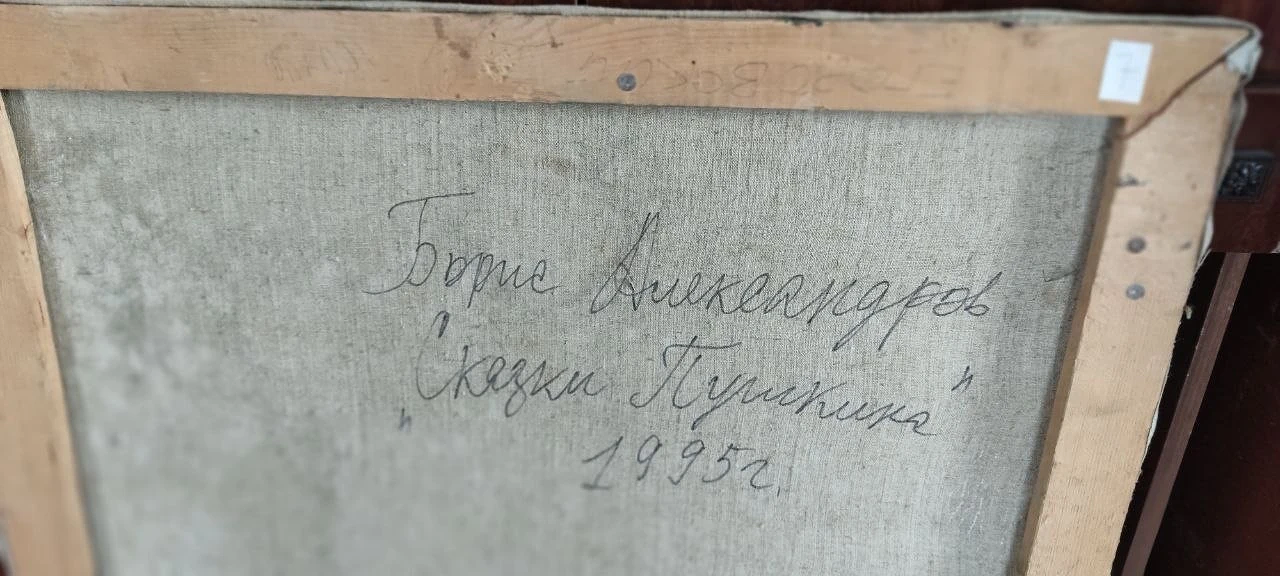 Борис Александров
„Сказки Пушкина"
1995г.